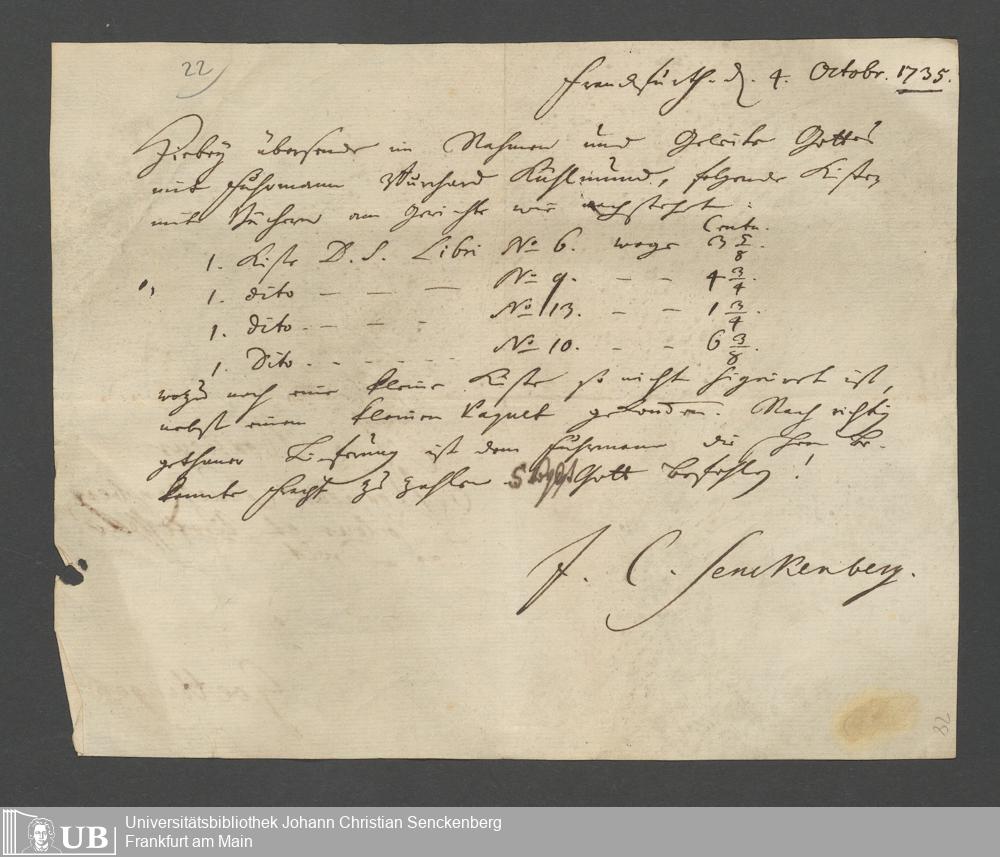 22
Franckfurth. d. 4. Octobr. 1735.
Hiebey übersende im Nahmen und Geleite Gottes
mit Fuhrmann Burchard Kühlmund, folgende Kisten
mit Büchern am Gewichte wie nachstehet:
Centn.
1. Kiste D. S. Libri No 6. woge 3 5/8.
1. dito — — — No 9. – – 4 3/4.
1. dito. – – – No 13. – – 1 3/4.
1. Dito. – – – – – No 10. – – 6 3/8.
wozu noch eine kleine Kiste so nicht signiret ist,
nebst einem kleinen Paquet gekommen. Nach richtig
gethaner Lieferung ist dem Fuhrmann die Ihm be-
kannte Fracht zu zahlen Gott befohlen!
J. C. Senckenberg.
22
UB
Universitätsbibliothek Johann Christian Senckenberg
Frankfurt am Main